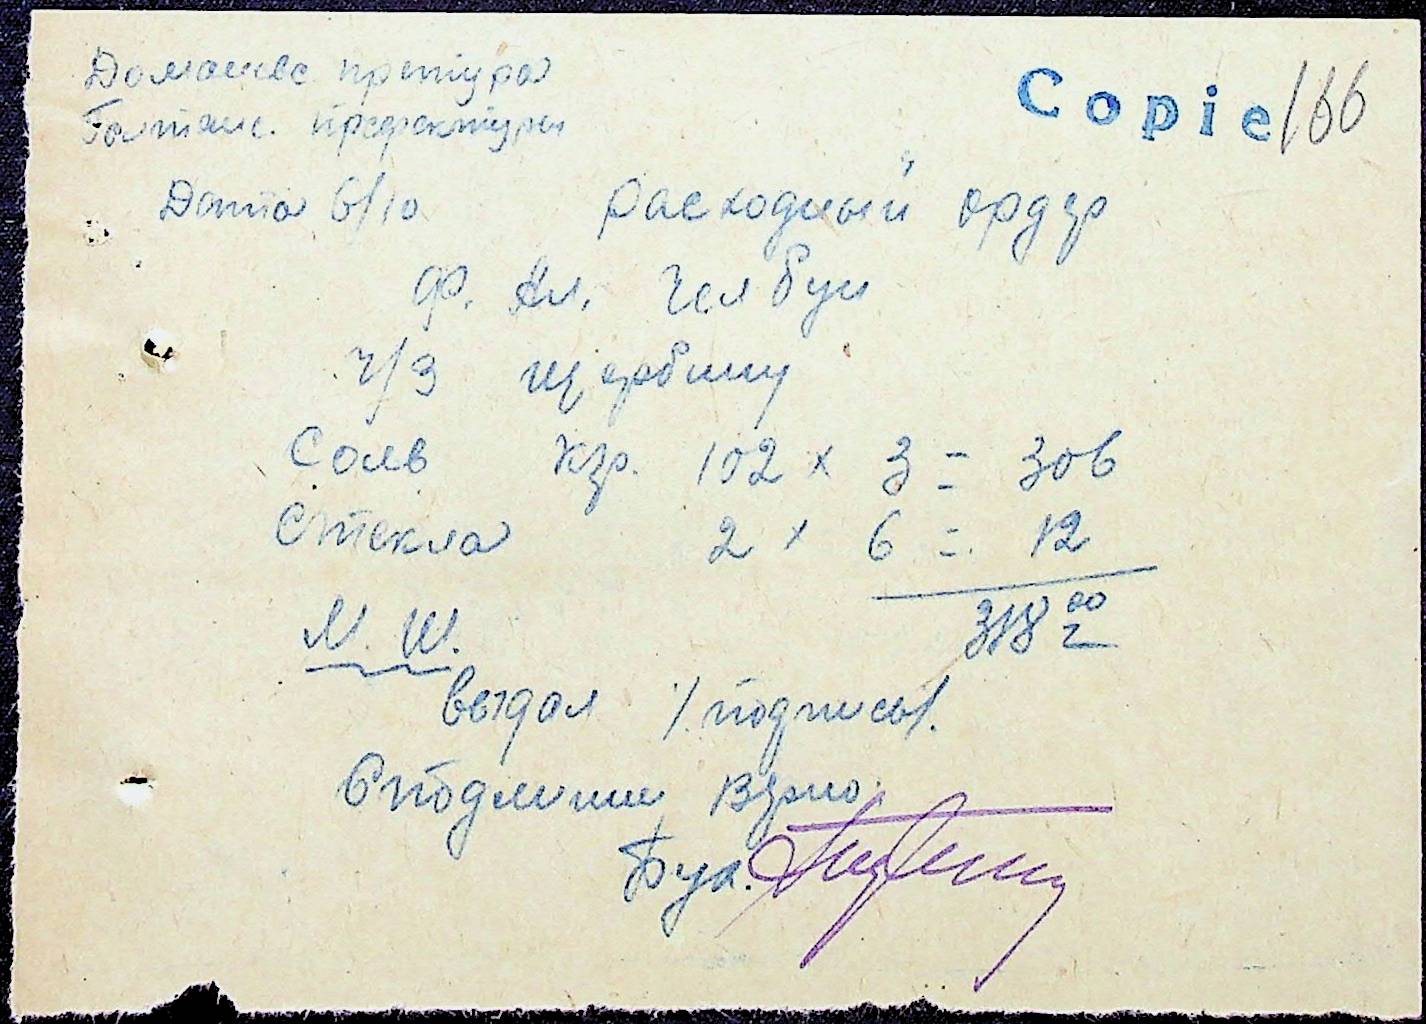 Доманевс. претура
Голтянс. префектуры
Copie 166
Дата 6/10 расходный ордер
Ф. Ал. Челбун
ч/з Щербину
Соль кгр. 102 x 3 = 306
Стекла 2 x 6 = 12
318 00
М. Ш.
Выдал /подпись/.
С подлиним верно.
Бух.